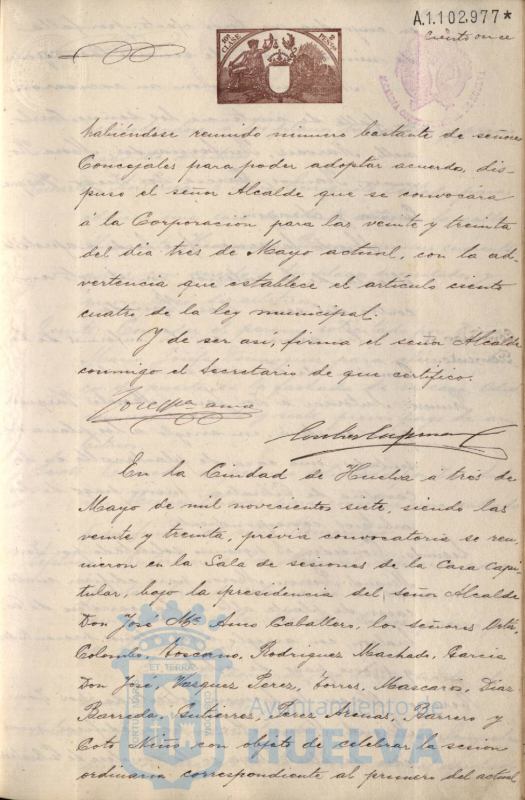 A.1.102,977*
Ciento once
habiéndose reunido número bastante de señores
Concejales para poder adoptar acuerdo, dis-
puso el señor Alcalde que se convocára
á la Corporación para las veinte y treinta
del dia tres de Mayo actual, con la ad-
vertencia que establece el artículo ciento
cuatro de la ley municipal.
Y de ser así, firma el señor Alcalde
conmigo el Secretario de que certifico.
En la Ciudad de Huelva á tres de
Mayo de mil novecientos siete, siendo las
veinte y treinta, prévia convocatoria se reu-
nieron en la Sala de sesiones de la Casa Capi-
tular, bajo la presidencia del señor Alcalde
Don José Mª Amo Caballero, los señores Ortiz,
Colombo, Toscano, Rodriguez Machado, Garcia
Don José, Vasquez Perez, Torres, Mascarós, Diaz
Barreda, Gutierrez, Perez Arenas, Barrero y
Coto Niño con objeto de celebrar la sesion
ordinaria correspondiente al primero del actual
Ayuntamiento de
HUELVA